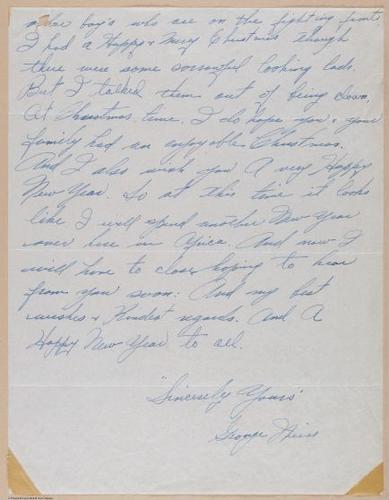 boy's who are on the fighting fronts
I had a Happy & Merry Christmas though
there were some sorrowful looking lads.
But I talked them out of being down,
At Christmas time. I do hope you & your
family had an enjoyable Christmas.
And I also wish you A very Happy
New Year. So at this time it looks
like I will spend another New Year
over here in Africa. And now I
will have to close hoping to hear
from you soon: And my best
wishes & Kindest regards. And A
Happy New Year to all.
"Sincerely Yours"
George